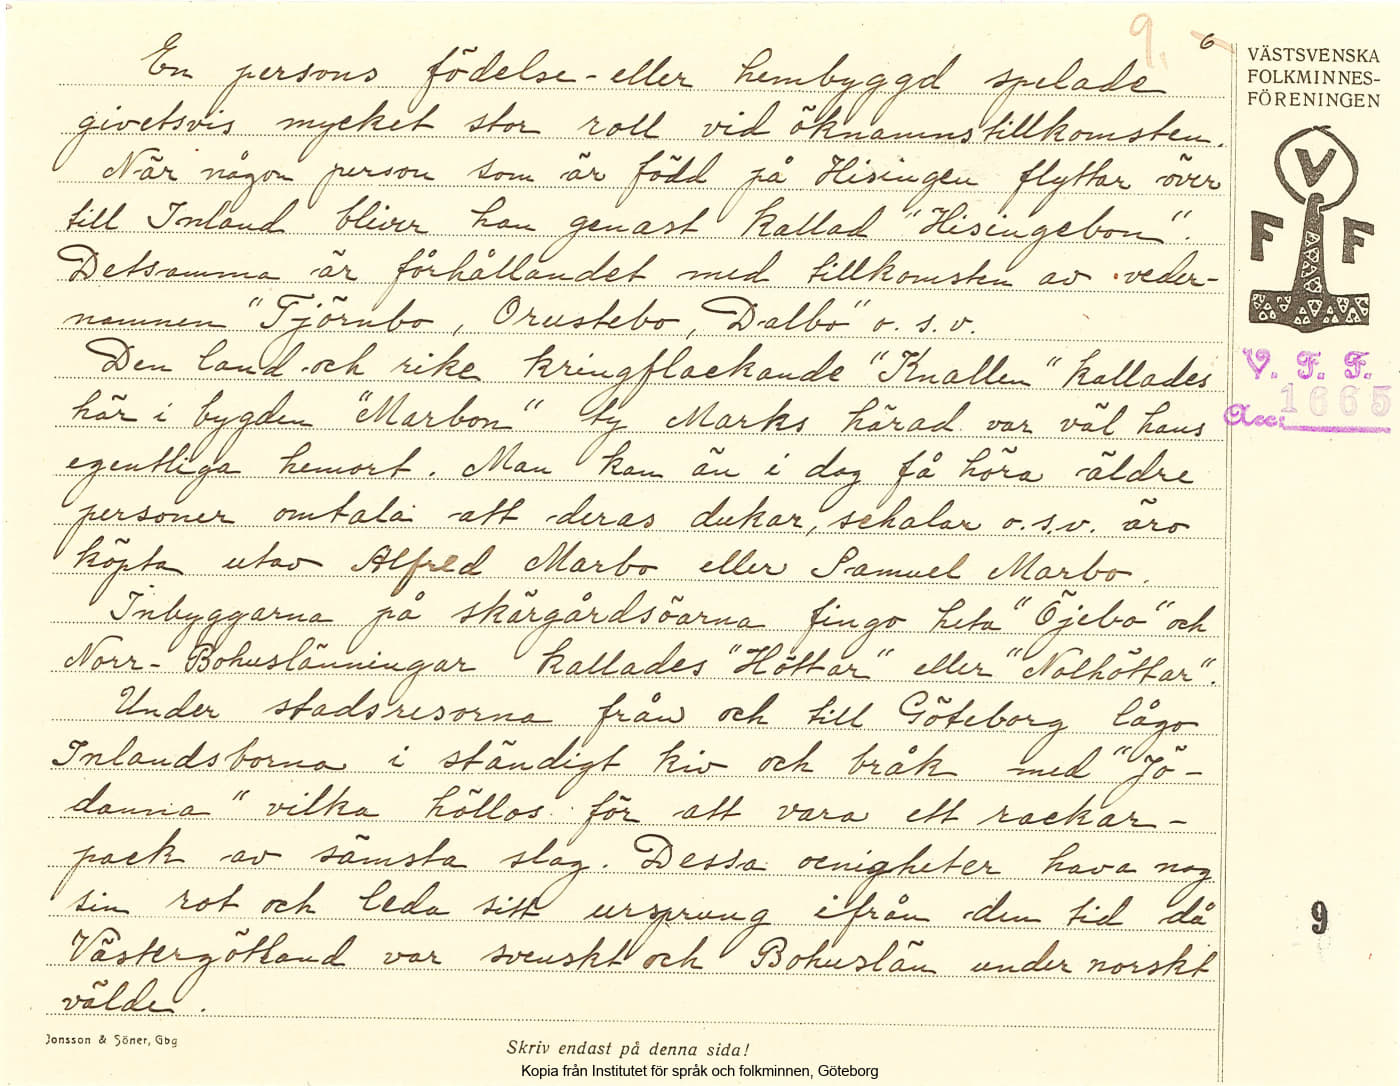 9. 6
En persons födelse- eller hembyggd spelade
givetsvis mycket stor roll vid öknamnstillkomsten.
När någon person som är född på Hisingen flyttar över
till Inland bliver han genast kallad "Hisingebon".
Detsamma är förhållandet med tillkomsten av veder-
namnen "Tjörnbo, Orustebo, Dalbo" o. s. v.
Den land och rike kringflackande "Knallen" kallades
här i bygden "Marbon" ty Marks härad var väl hans
egentliga hemort. Man kan än i dag få höra äldre
personer omtala att deras dukar, schalar o.s.v. äro
köpta utav Alfred Marbo eller Samuel Marbo.
Inbyggarna på skärgårdsöarna fingo heta "Öjebo" och
Norr-Bohuslänningar kallades "Höttar" eller "Nolhöttar".
Under stadsresorna från och till Göteborg lågo
Inlandsborna i ständigt kiv och bråk med "Jö-
danna" vilka höllos för att vara ett rackar-
pack av sämsta slag. Dessa oenigheter hava nog
sin rot och leda sitt ursprung ifrån den tid då
Västergötland var svenskt och Bohuslän under norskt
välde.
VÄSTSVENSKA
FOLKMINNES-
FÖRENINGEN
V
F F
V. F. F.
Acc: 1665
9
Jonsson & Söner, Gbg
Skriv endast på denna sida!
Kopia från Institutet för språk och folkminnen, Göteborg